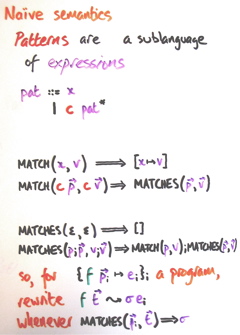 Naïve semantics
Patterns are a sublanguage
of expressions
pat ::= x
| c pat*
MATCH(x, v) ⟹ [x↦v]
MATCH(c p⃗, c v⃗) ⟹ MATCHES(p⃗, v⃗)
MATCHES(ε, ε) ⟹ []
MATCHES(p;p⃗, v;v⃗) ⟹ MATCH(p,v); MATCHES(p⃗,v⃗)
so, for {f p⃗ᵢ ↦ eᵢ}ᵢ a program,
rewrite f t⃗ ⤳ σeᵢ
whenever MATCHES(p⃗ᵢ, t⃗) ⟹ σ